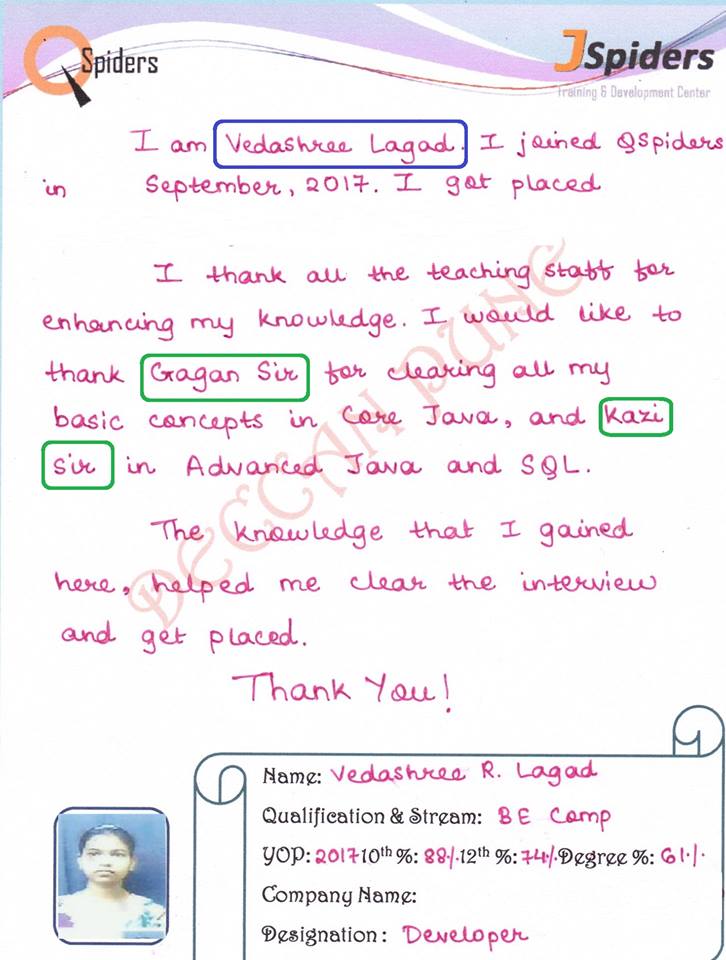 QSpiders
JSpiders
Training & Development Center
I am Vedashree Lagad. I joined QSpiders
in September, 2017. I got placed
I thank all the teaching staff for
enhancing my knowledge. I would like to
thank Gagan Sir for clearing all my
basic concepts in Core Java, and Kazi
Sir in Advanced Java and SQL.
The knowledge that I gained
here, helped me clear the interview
and get placed.
Thank You!
DECCAN PUNE
Name: Vedashree R. Lagad
Qualification & Stream: BE Comp
YOP: 2017 10th %: 88% 12th %: 74% Degree %: 61%
Company Name:
Designation: Developer